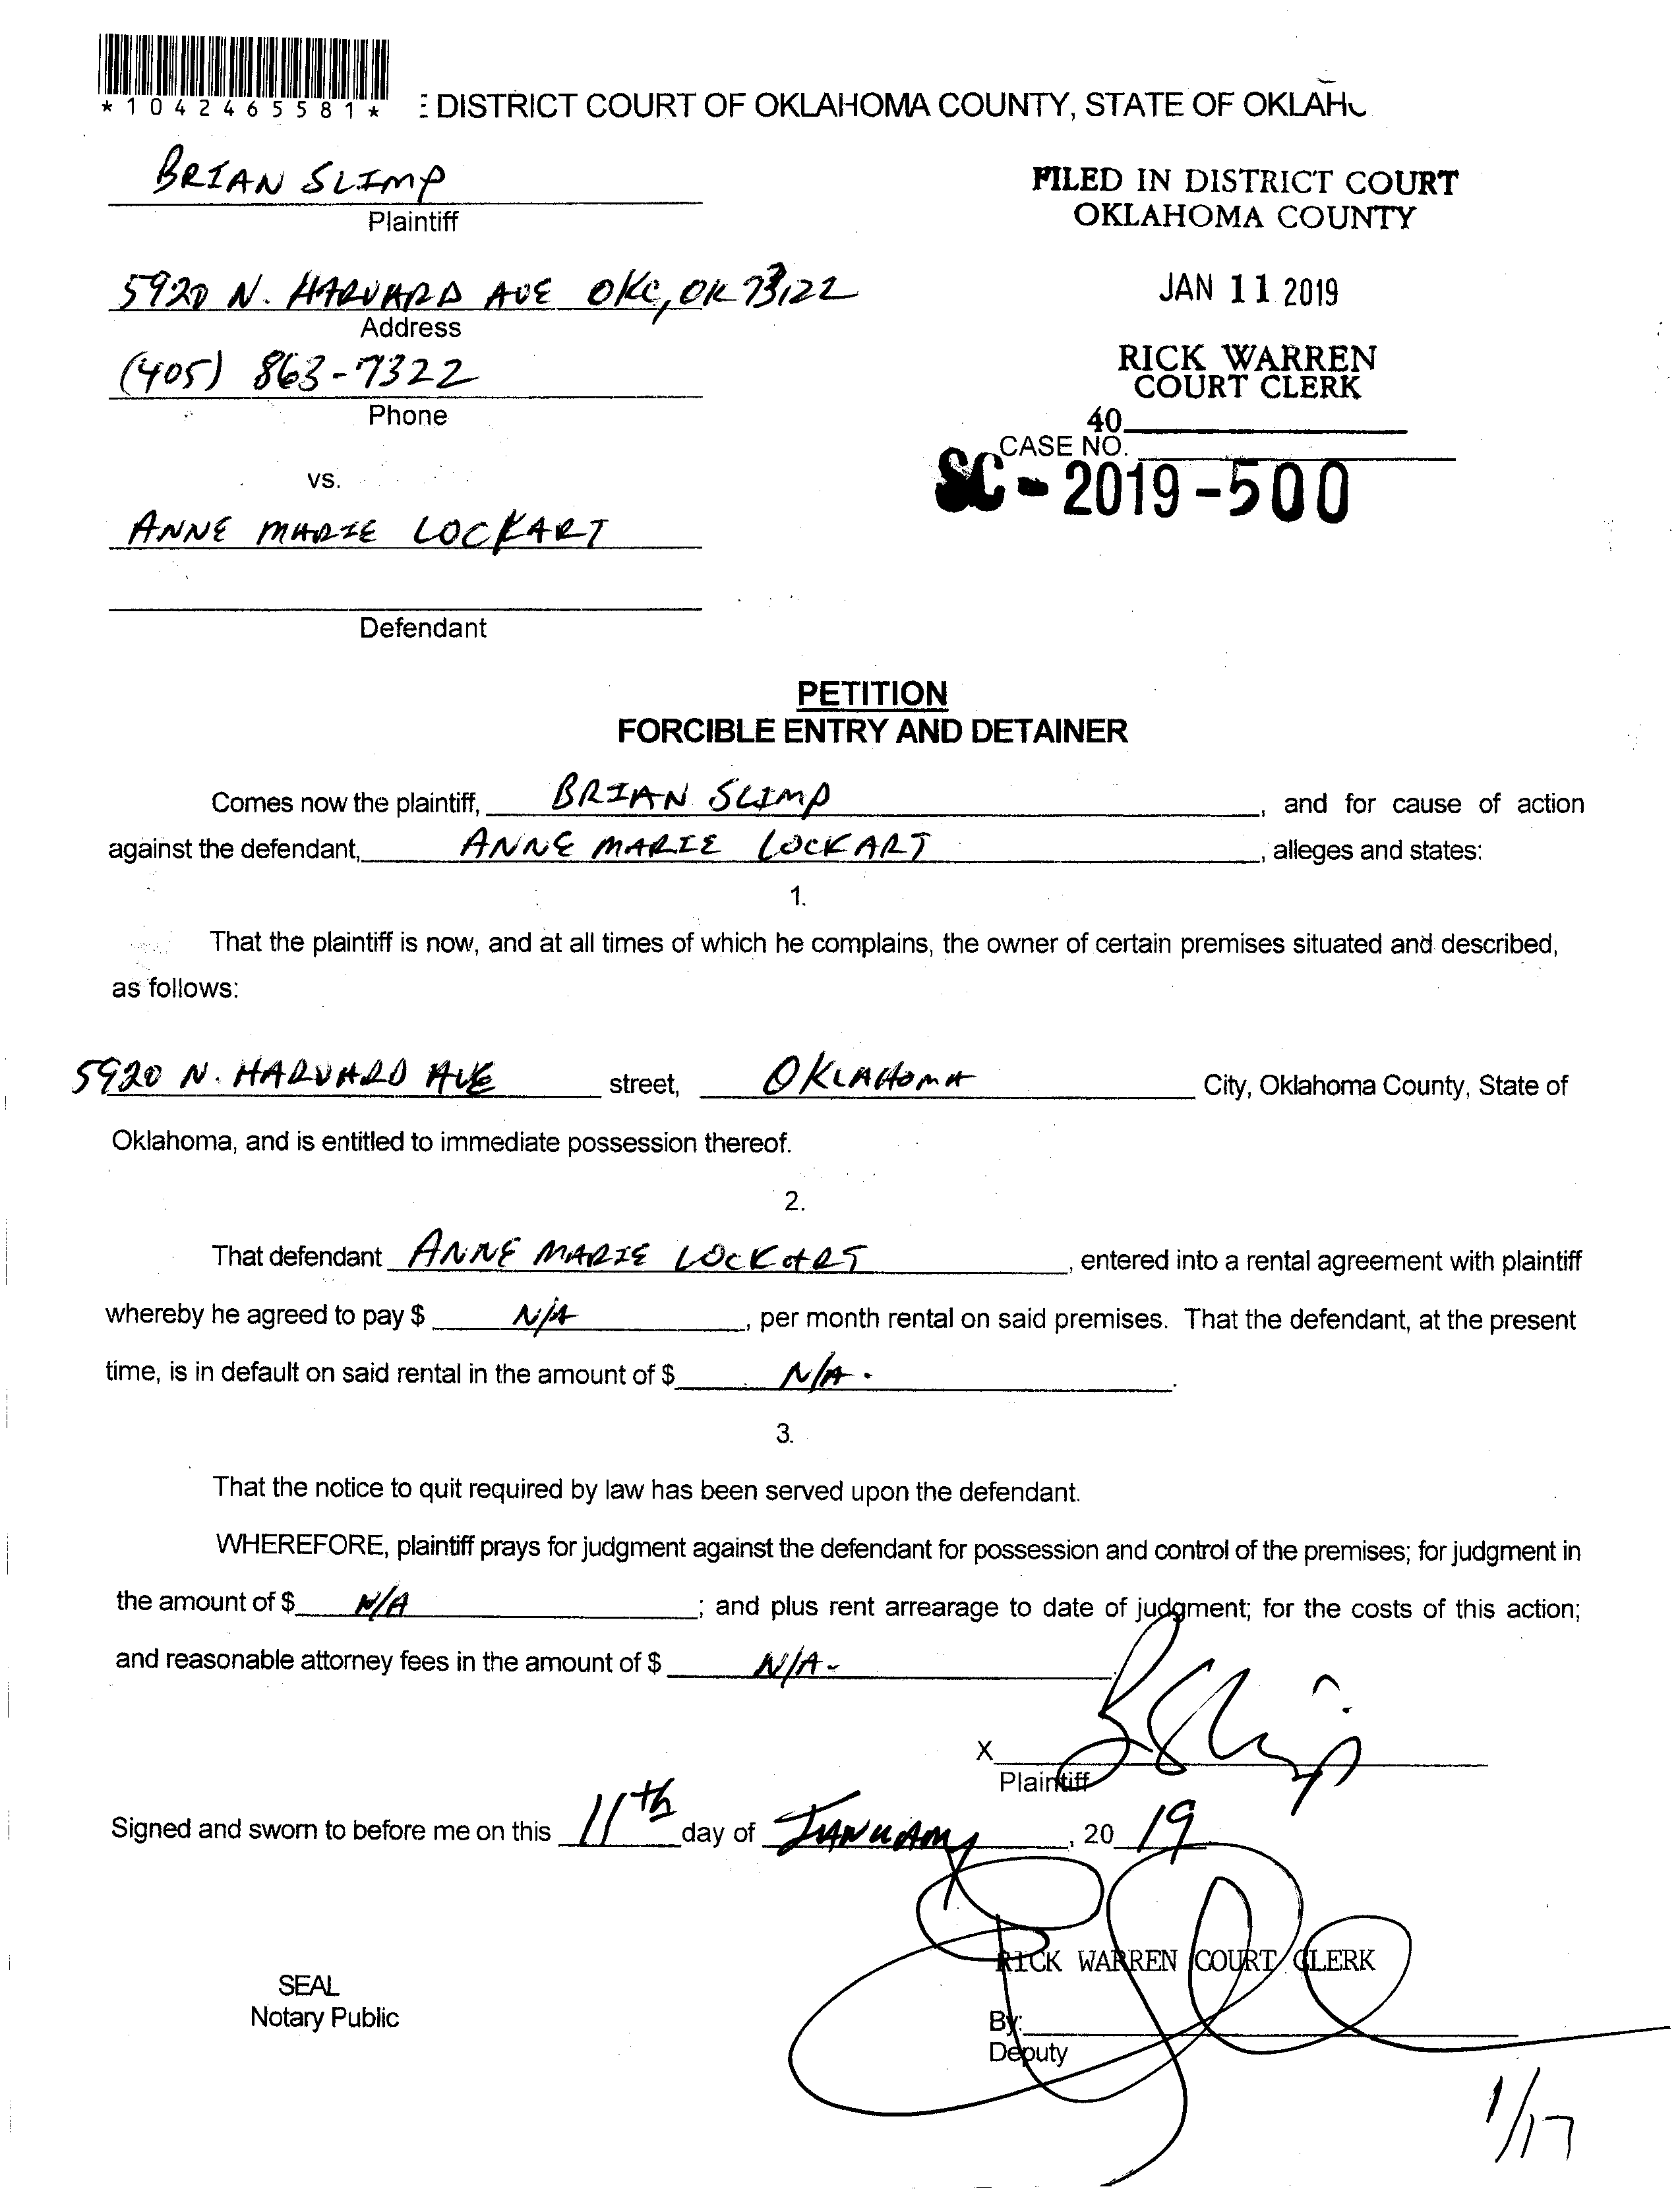 *1042465581*
E DISTRICT COURT OF OKLAHOMA COUNTY, STATE OF OKLAH
BRIAN SLIMP
Plaintiff
FILED IN DISTRICT COURT
OKLAHOMA COUNTY
5920 N. HARVARD AVE OKC, OK 73122
Address
JAN 11 2019
(405) 863-7322
Phone
RICK WARREN
COURT CLERK
40
CASE NO.
SC-2019-500
vs.
ANNE MARIE LOCKART
Defendant
PETITION
FORCIBLE ENTRY AND DETAINER
Comes now the plaintiff, BRIAN SLIMP, and for cause of action
against the defendant, ANNE MARIE LOCKART, alleges and states:
1.
That the plaintiff is now, and at all times of which he complains, the owner of certain premises situated and described,
as follows:
5920 N. HARVARD AVE street, OKLAHOMA City, Oklahoma County, State of
Oklahoma, and is entitled to immediate possession thereof.
2.
That defendant ANNE MARIE LOCKART, entered into a rental agreement with plaintiff
whereby he agreed to pay $ N/A, per month rental on said premises. That the defendant, at the present
time, is in default on said rental in the amount of $ N/A.
3.
That the notice to quit required by law has been served upon the defendant.
WHEREFORE, plaintiff prays for judgment against the defendant for possession and control of the premises; for judgment in
the amount of $ N/A; and plus rent arrearage to date of judgment; for the costs of this action;
and reasonable attorney fees in the amount of $ N/A-
X B Slimp
Plaintiff
Signed and sworn to before me on this 11th day of JANUARY, 20 19
RICK WARREN COURT CLERK
SEAL
Notary Public
By:
Deputy
1/17